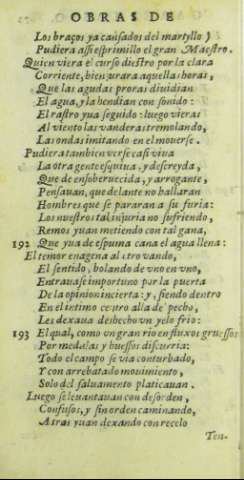 OBRAS DE
Los braços ya cansados del martyllo)
Pudiera assi esprimillo el gran Maestro.
Quien viera el curso diestro por la clara
Corriente, bien jurara aquellas horas,
Que las agudas proras diuidian
El agua, y la hendian con sonido:
El rastro yua seguido: luego vieras
Al viento las vanderas tremolando,
Las ondas imitando en el mouerse.
Pudiera tambien verse casi viua
La otra gente esquiua, y descreyda,
Que de ensoberuecida, y arrogante,
Pensauan, que delante no hallaran
Hombres que se pararan a su furia:
Los nuestros tal injuria no sufriendo,
Remos yuan metiendo con tal gana,
192 Que yua de espuma cana el agua llena:
El temor enagena al otro vando,
El sentido, bolando de vno en vno,
Entrauase importuno por la puerta
De la opinion incierta: y, siendo dentro
En el intimo centro alla de'pecho,
Les dexaua deshecho vn yelo frio:
193 El qual, como vn gran rio en fluxos gruessos
Por medulas y huessos discurria:
Todo el campo se via conturbado,
Y con arrebatado mouimiento,
Solo del saluamento platicauan.
Luego se leuantauan con desorden,
Confusos, y sin orden caminando,
Atras yuan dexando con recelo
Ten-